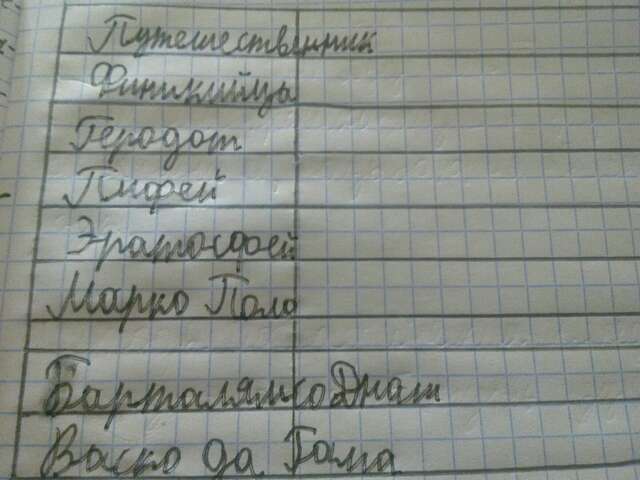 Путешественник
Финикийцы
Геродот
Пифей
Эратосфей
Марко Поло
Барталямео Диаш
Васко да Гама